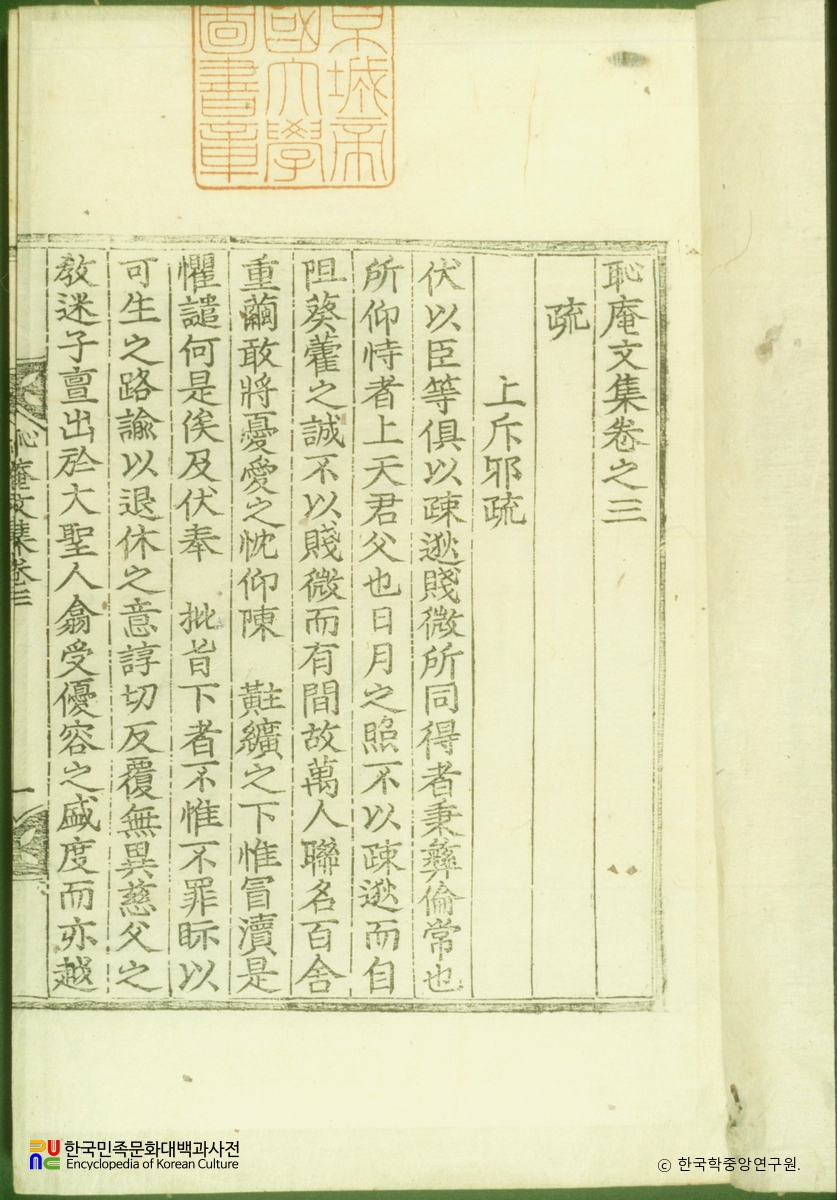 京城帝
國大學
圖書章
恥庵文集卷之三
疏
上斥邪疏
伏以臣等俱以疎逖賤微所同得者秉彛倫常也
所仰恃者上天君父也日月之照不以疎逖而自
阻葵藿之誠不以賤微而有間故萬人聯名百舍
重繭敢將憂愛之忱仰陳 黈纊之下惟冒瀆是
懼譴何是俟及伏奉 批旨下者不惟不罪眎以
可生之路諭以退休之意諄切反覆無異慈父之
敎迷子亶出於大聖人翕受優容之盛度而亦越
恥庵文集卷三
一
한국민족문화대백과사전
Encyclopedia of Korean Culture
ⓒ 한국학중앙연구원.